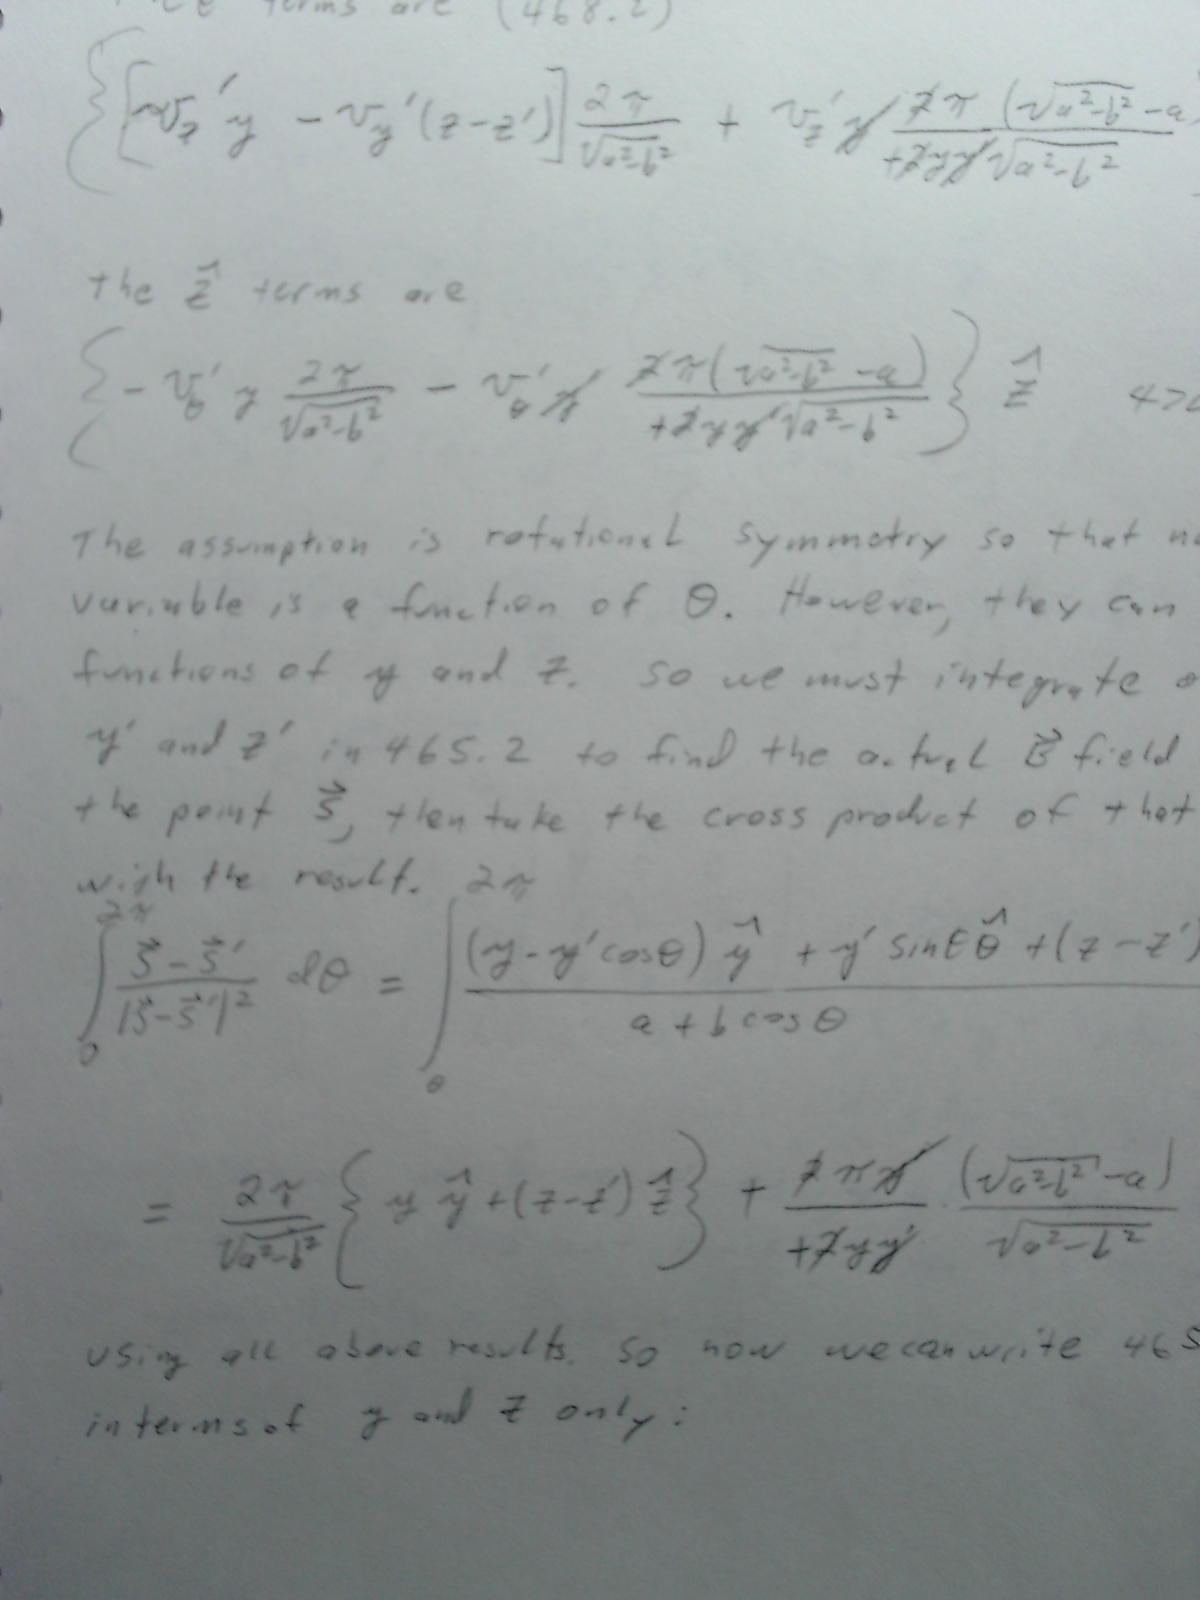 terms are (468.2)
{[v_z' y - v_y'(z-z')] 2π/√(a²-b²) + v_z' y' 2π(√(a²-b²) -a)/(+2yy'√(a²-b²))
the ẑ terms are
{- v_θ' y 2π/√(a²-b²) - v_θ' y' 2π(√(a²-b²) -a)/(+2yy'√(a²-b²))} ẑ
The assumption is rotational symmetry so that
variable is a function of θ. However, they can
functions of y and z. So we must integrate
y' and z' in 465.2 to find the actual B⃗ field
the point S⃗, then take the cross product of that
with the result.
∫₀^2π (S⃗-S⃗')/|S⃗-S⃗'|² dθ = ∫₀^2π ((y-y'cosθ) ŷ + y' sinθ θ̂ + (z-z')/(a + b cosθ)
= 2π/√(a²-b²) {y ŷ + (z-z') ẑ} + 2πy'/(+2yy') · (√(a²-b²) -a)/√(a²-b²)
using all above results. So now we can write 465
in terms of y and z only: